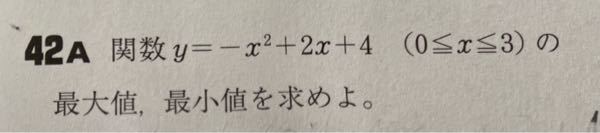 42A 関数 y=−x²+2x+4 (0≦x≦3) の
最大値, 最小値を求めよ。